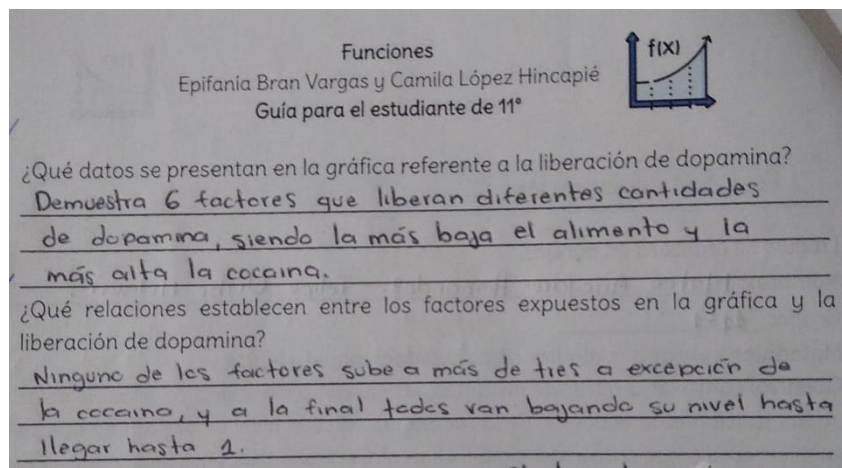 Funciones
f(x)
Epifanía Bran Vargas y Camila López Hincapié
Guía para el estudiante de 11°
¿Qué datos se presentan en la gráfica referente a la liberación de dopamina?
Demuestra 6 factores que liberan diferentes cantidades
de dopamina, siendo la más baja el alimento y la
más alta la cocaina.
¿Qué relaciones establecen entre los factores expuestos en la gráfica y la
liberación de dopamina?
Ninguno de los factores sube a más de tres a excepción de
la cocaina, y a la final todos van bajando su nivel hasta
llegar hasta 1.